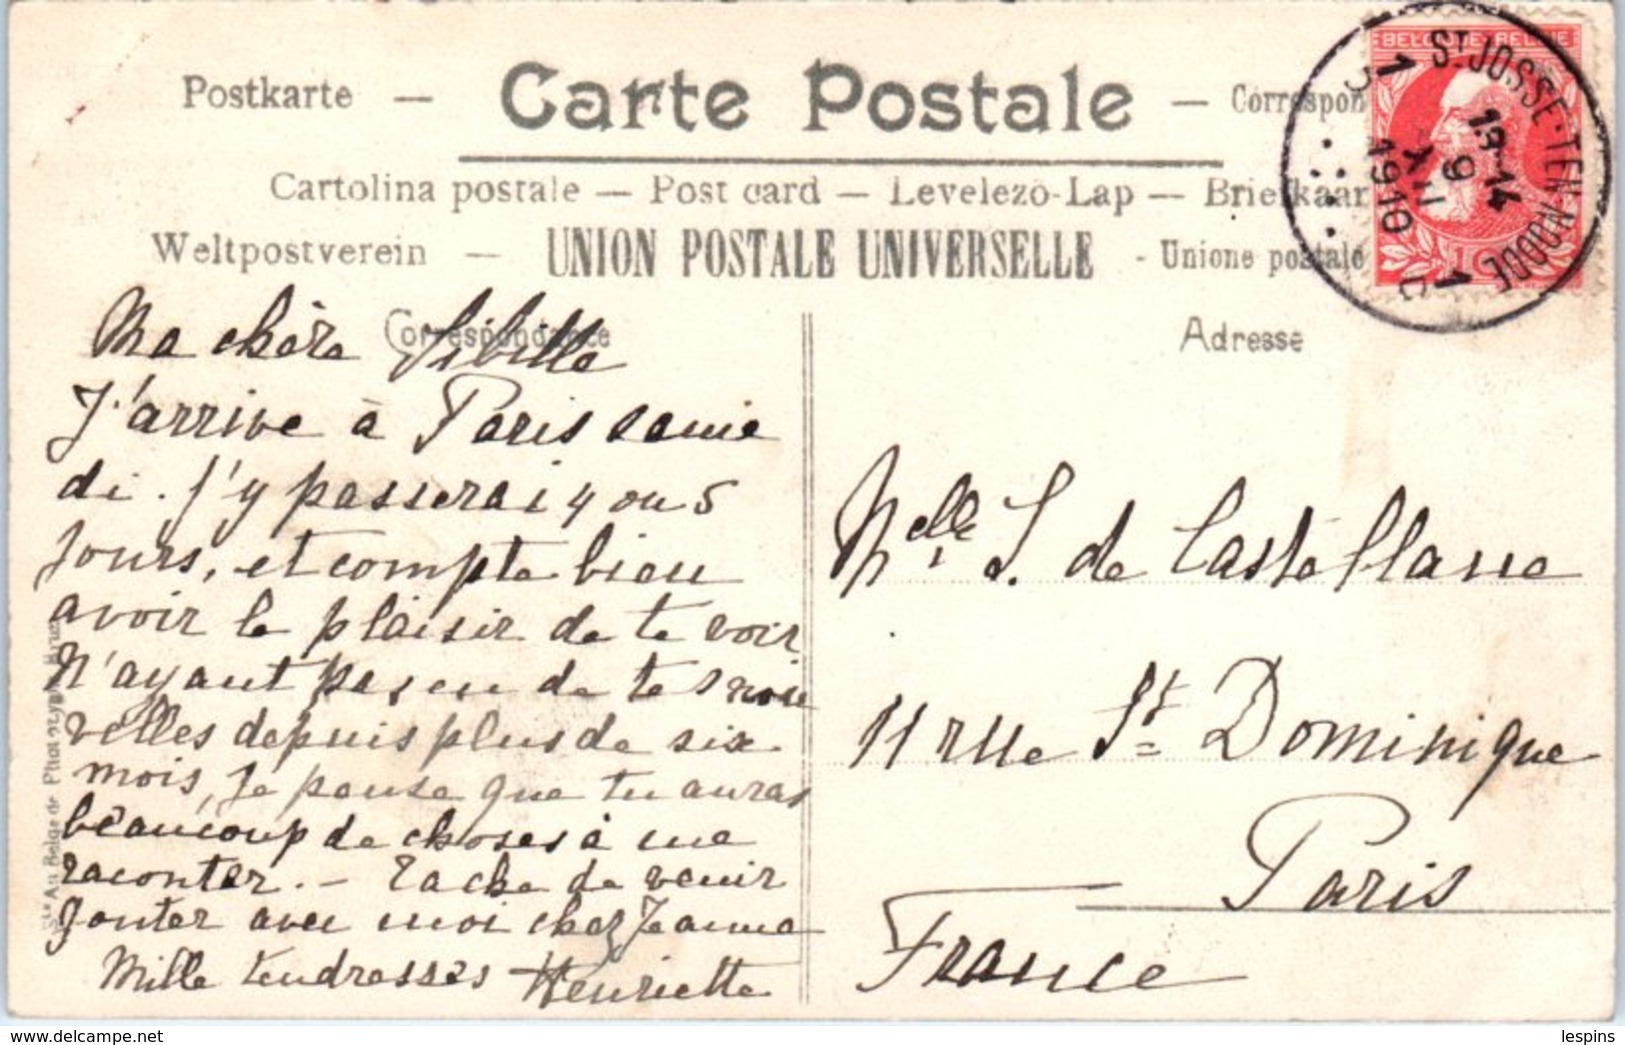 Postkarte — Carte Postale — Correspon
Cartolina postale — Post card — Levelezö-Lap — Briefkaar
Weltpostverein — UNION POSTALE UNIVERSELLE - Unione postale
Correspondance
Adresse
BELGIQUE BELGIE
10
ST JOSSE-TEN-NOODE
1 1
13-14
9
XII
1910
Ma chère Sibille
J'arrive à Paris same
di. J'y passerai 4 ou 5
jours, et compte bien
avoir le plaisir de te voir
N'ayant pas eu de tes nou
velles depuis plus de six
mois, je pense que tu auras
beaucoup de choses à me
raconter. — Tache de venir
gouter avec moi chez Jeanne
Mille tendresses Henriette
Melle S. de Castellane
11 rue St Dominique
Paris
France
lespins